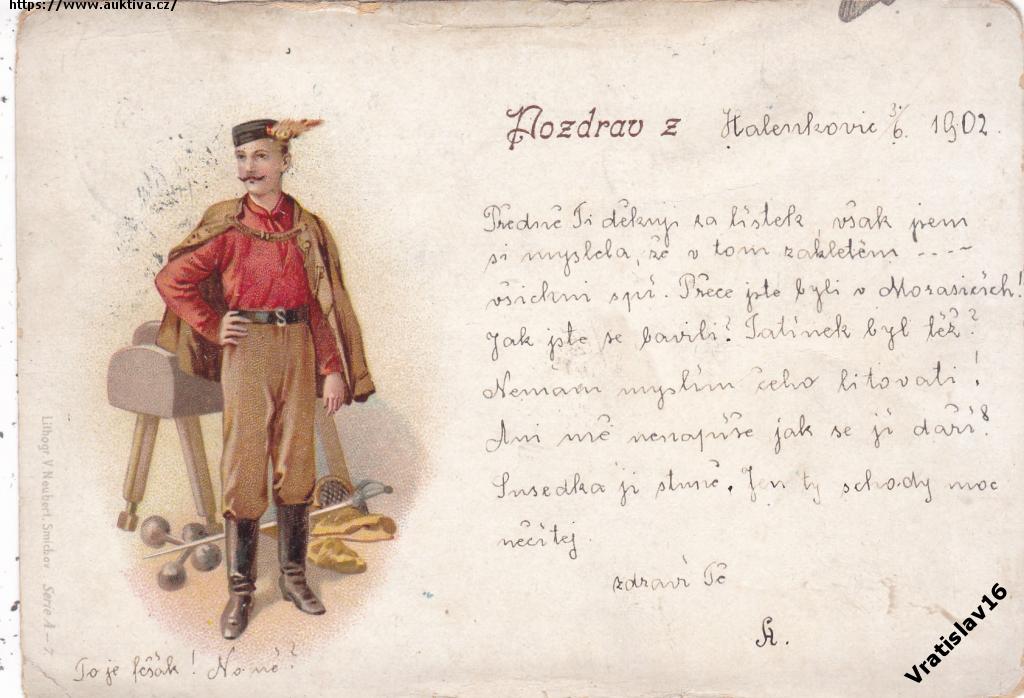 https://www.auktiva.cz/
Pozdrav z Halenkovic 3/6. 1902.
Předně Ti děkuji za lístek, však jsem
si myslela, že v tom zakletém ----
všichni spí. Přece jste byli v Morašicích!
Jak jste se bavili? Tatínek byl též?
Nemám myslím čeho litovati!
Ani mě nenapíše jak se jí daří?
Susedka ji stůně. Jen ty schody moc
nečítej.
zdraví Tě
A.
To je fešák! No ne?
Lithogr. V. Neubert. Smichov Serie A - 7
Vratislav16